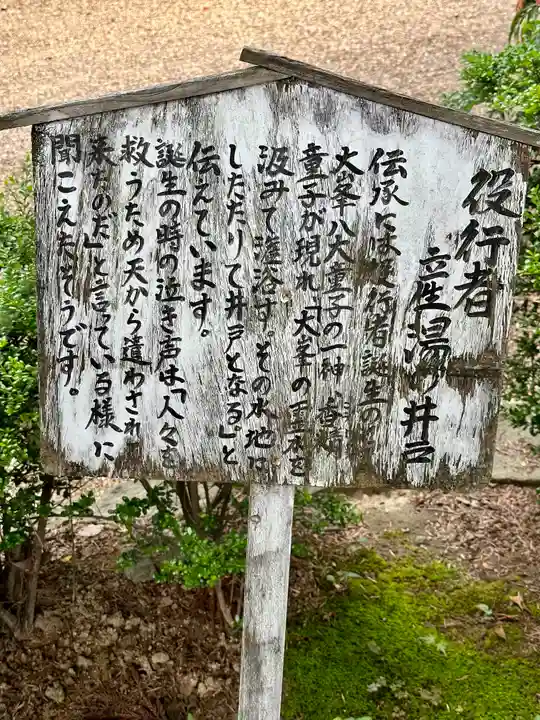 役行者
産湯の井戸
伝承に 役行者誕生の
大峯八大童子の一神 香精
童子が現れ「大峯の を
汲みて灌浴す。その水地に
したたりて井戸となる。」と
伝えています。
誕生の時の泣き声は「人々を
救うため天から遣わされ
来たのだ」と言っている様に
聞こえたそうです。